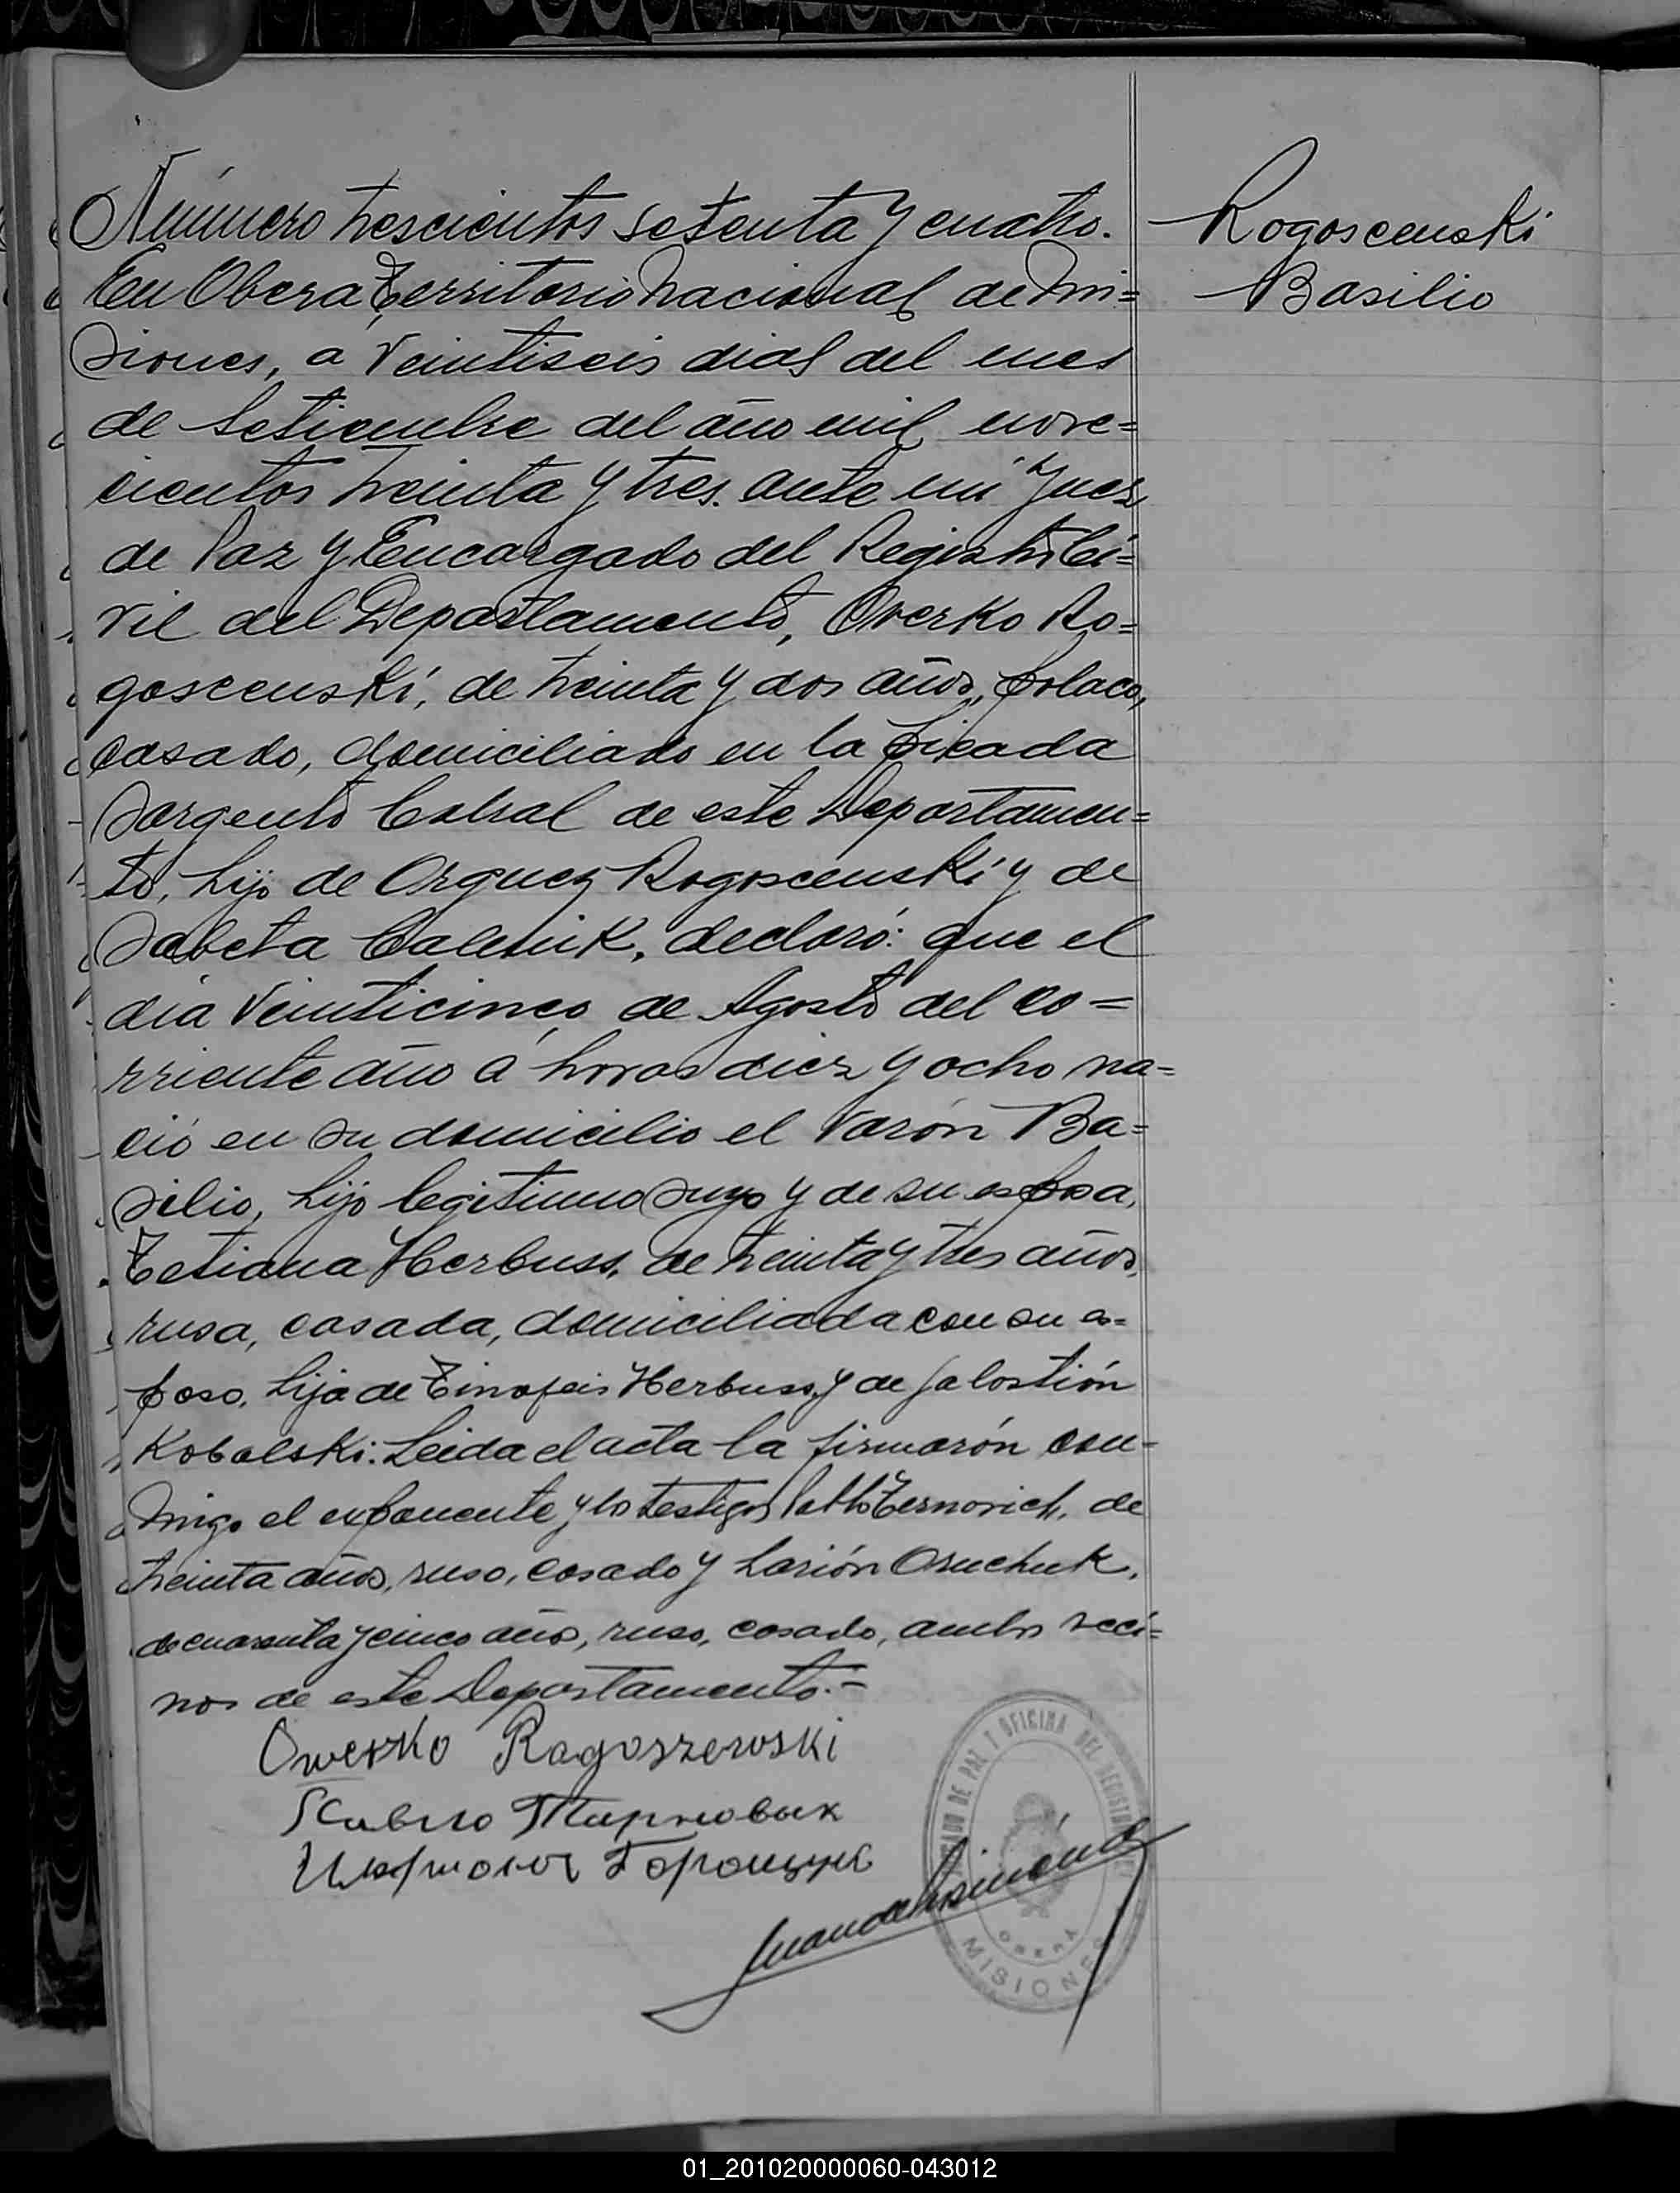 Número trescientos setenta y cuatro.
En Obera Territorio Nacional de Mi=
siones, a veintiseis dias del mes
de Setiembre del año mil nove=
cientos treinta y tres. ante mi Juez
de Paz y Encargado del Registro Ci=
vil del Departamento, Overko Ro=
goscenski, de treinta y dos años, polaco,
casado, domiciliado en la picada
Sargento Cabral de este Departamen=
to, hijo de Orguez Rogoscenski y de
Sabeta Calenik, declaró: que el
dia veinticinco de Agosto del co=
rriente año a horas diez y ocho na=
ció en su domicilio el varón Ba=
silio, hijo legitimo suyo y de su esposa,
Tetiana Herbuss, de treinta y tres años,
rusa, casada, domiciliada con su es=
poso, hija de Timofeis Herbuss, y de Jalostión
Kobalski. Leida el acta la firmarón con=
migo el exponente y los testigos Pablo Ternovich, de
treinta años, ruso, casado y Larión Oruchuk,
de cuarenta y cinco años, ruso, casado, ambos veci=
nos de este Departamento.=
Owerko Ragoszewski
Павло Тирновых
Горощук
Juan
JUZGADO DE PAZ Y OFICINA DEL REGISTRO
OBERÁ
MISIONES
Rogoscenski
Basilio
01_201020000060-043012